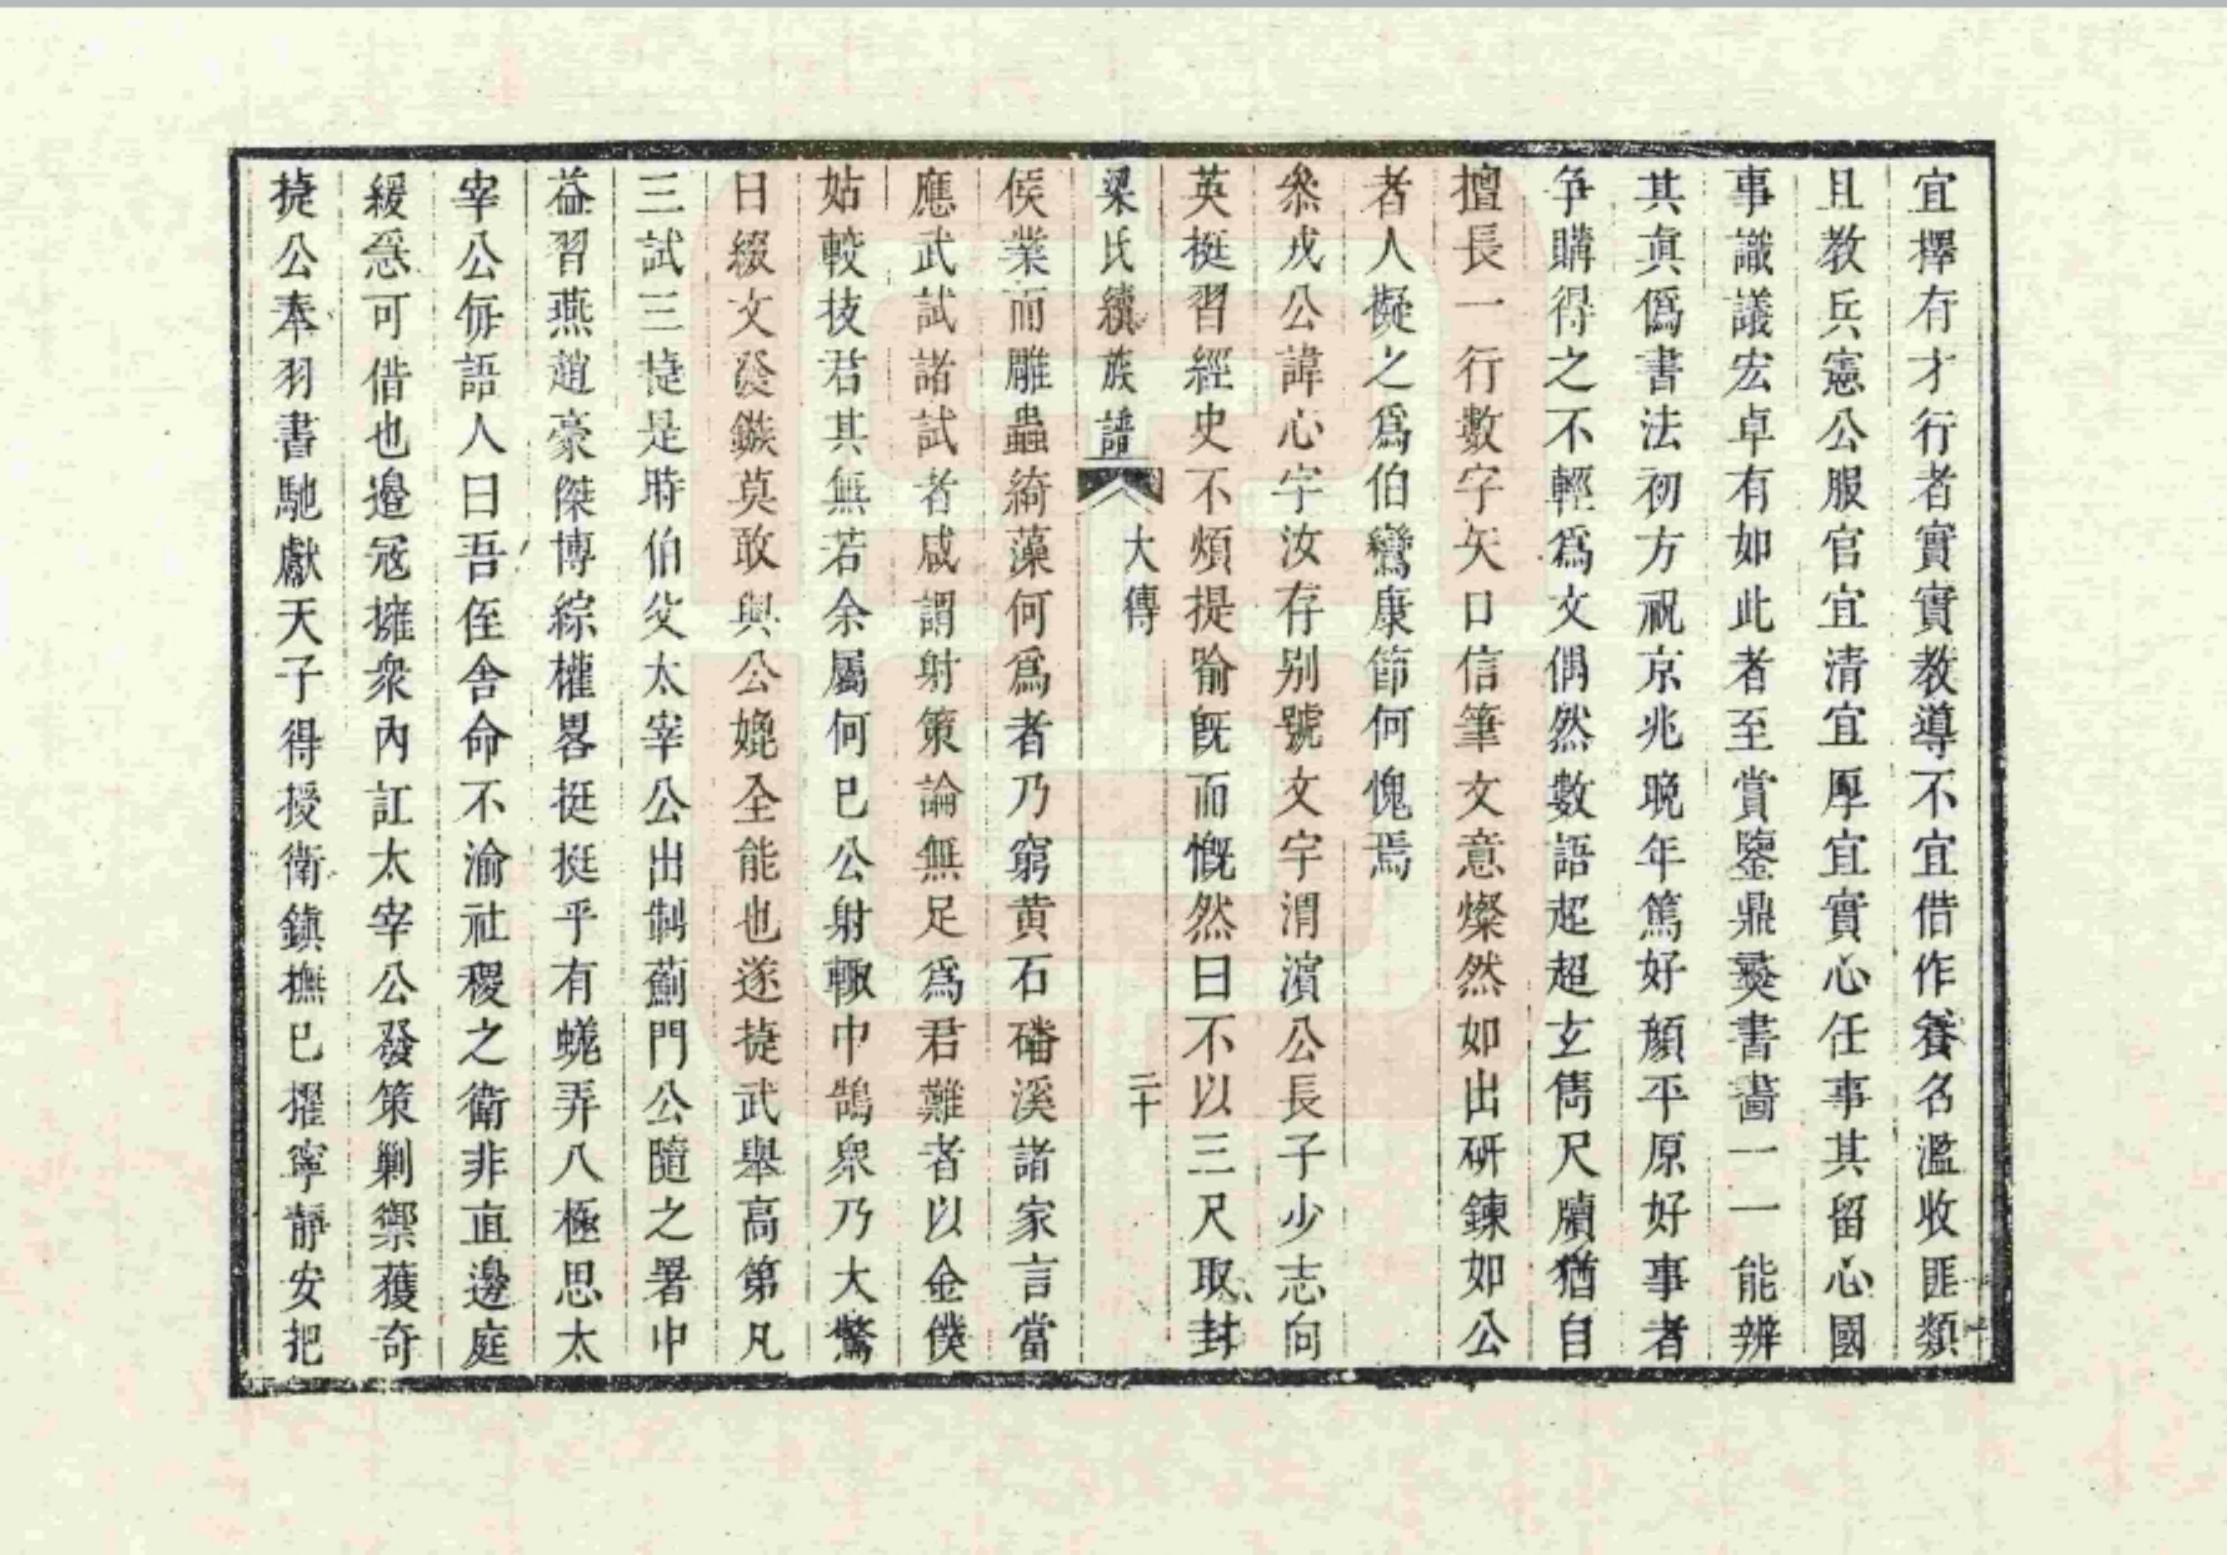 宜擇有才行者實實教導不宜借作養名濫收匪類
且教兵憲公服官宜清宜厚宜實心任事其留心國
事識議宏卓有如此者至賞鑒鼎彝書畵一一能辨
其眞僞書法初方祝京兆晚年篤好顏平原好事者
争購得之不輕爲文偶然數語起超玄雋尺牘猶自
擅長一行數字矢口信筆文意燦然如出硏鍊如公
者人擬之爲伯鸞康節何愧焉
叅戎公諱心宇汝存别號文宇渭濵公長子少志向
英挺習經史不煩提喻旣而慨然曰不以三尺取封
梁氏續族譜 大傳 二十
侯業而雕蟲綺藻何爲者乃窮黄石磻溪諸家言當
應武試諸試者咸謂射策論無足爲君難者以金僕
姑較技君其無若余屬何已公射輙中鵠衆乃大驚
日綴文發鏃莫敢與公媲全能也遂捷武舉高第凡
三試三捷是時伯父太宰公出制薊門公隨之署中
益習燕趙豪傑博綜權畧挺挺乎有蛻弄八極思太
宰公每語人曰吾侄舍命不渝社稷之衛非直邊庭
緩急可借也邉冦擁衆內訌太宰公發策剿禦獲奇
捷公奉羽書馳獻天子得授衛鎮撫已擢寧靜安把